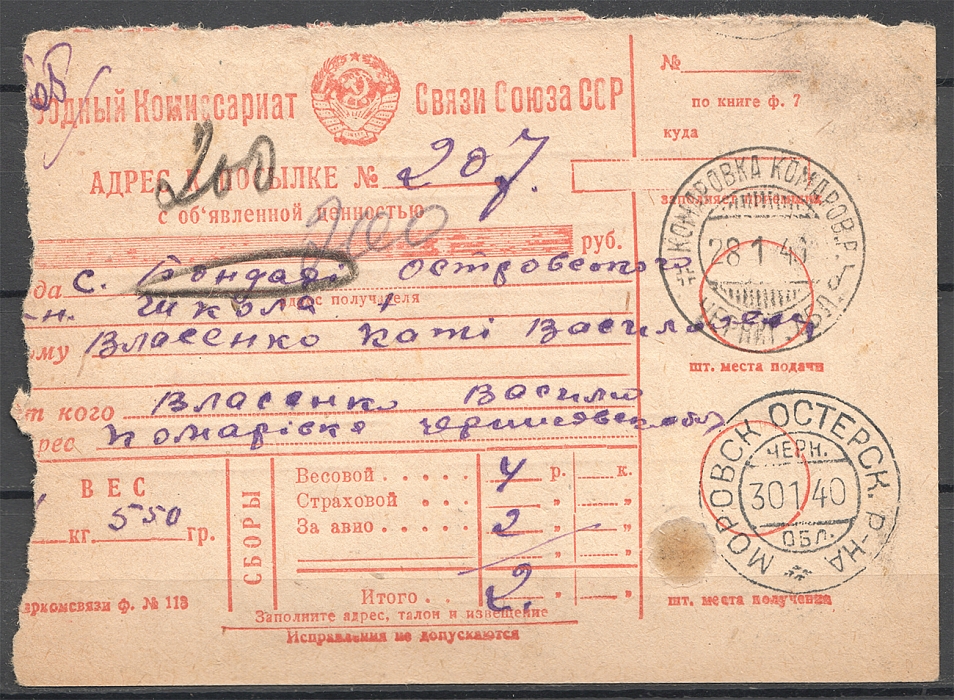 родный Комиссариат Связи Союза ССР
200
АДРЕС К ПОСЫЛКЕ № 207
с об'явленной ценностью
200
руб.
да с. Бондарі Островского
адрес получателя
н. школа
ому Власенко Каті Васил
т кого Власенко Василю
рес Комарівка
ВЕС
кг. 550 гр.
СБОРЫ
Весовой р. к.
Страховой " "
За авио 2 " "
" "
Итого 2. "
аркомсвязи ф. № 113
Заполните адрес, талон и извещение
Исправления не допускаются
№
по книге ф. 7
куда
заполняется
КОМАРОВКА КОМАРОВ. Р.
28 1 4
ОБЛ.
шт. места подачи
МОРОВСК ОСТЕРСК. Р-НА
ЧЕРН.
30 1 40
ОБЛ.
шт. места получения